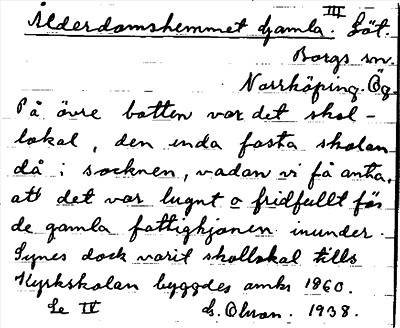 III
Ålderdomshemmet Gamla. Löt.
Borgs sn.
Norrköping. Ög.
På övre botten var det skol-
lokal, den enda fasta skolan
då i socknen, vadan vi få anta,
att det var lugnt o fridfullt för
de gamla fattighjonen inunder.
Synes dock varit skollokal tills
Kyrkskolan byggdes omkr 1860.
Se IV S. Ohson. 1938.